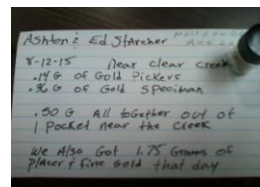 Ashton & Ed StArcher
8-12-15 Near clear creek
.14 G of Gold Pickers
.36 G of Gold Speciman
.50 G All together out of
1 Pocket near the creek
We Also Got 1.75 Grams of
Placer & fine Gold that day